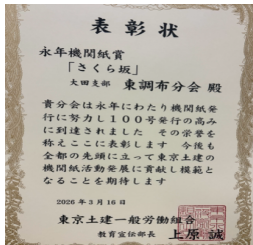 表彰状
永年機関紙賞
「さくら坂」
大田支部 東調布分会 殿
貴分会は永年にわたり機関紙発
行に努力し100号発行の高み
に到達されました その栄誉を
称えここに表彰します 今後も
全都の先頭に立って東京土建の
機関紙活動発展に貢献し模範と
なることを期待します
2026年3月16日
東京土建一般労働組合
教育宣伝部長 上原 誠